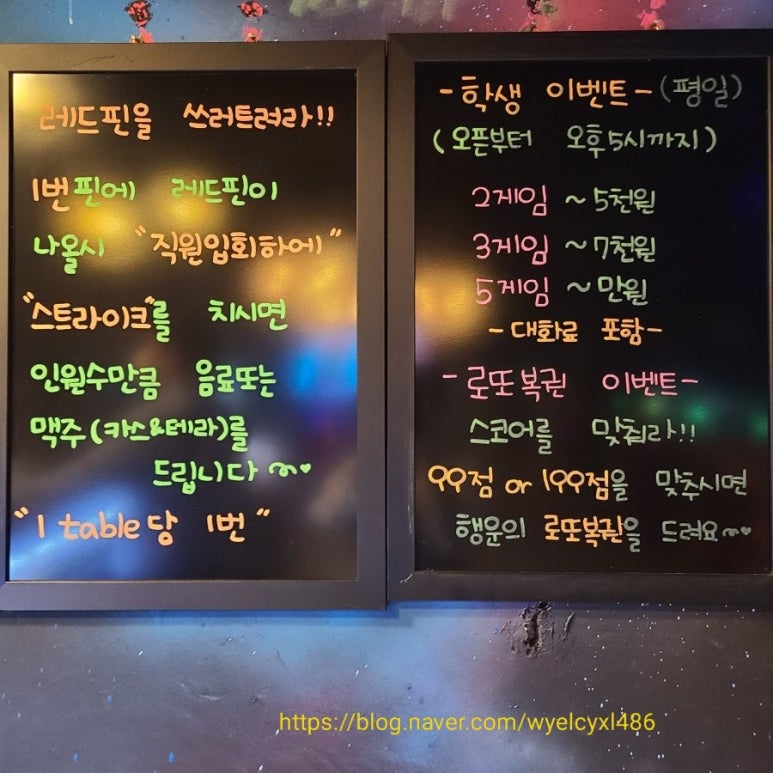 레드핀을 쓰러트려라!!
1번핀에 레드핀이
나올시 "직원입회하에"
"스트라이크"를 치시면
인원수만큼 음료또는
맥주(카스&테라)를
드립니다
"1 table당 1번"
-학생 이벤트-(평일)
(오픈부터 오후5시까지)
2게임 ~5천원
3게임 ~7천원
5게임 ~만원
-대화료 포함-
-로또복권 이벤트-
스코어를 맞춰라!!
99점 or 199점을 맞추시면
행운의 로또복권을 드려요~
https://blog.naver.com/wyelcyxl486